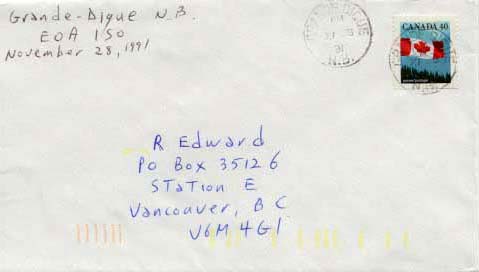 Grande-Digue N.B.
E0A 1S0
November 28, 1991
PM
91
N.B.
CANADA 40
R Edward
Po Box 35126
STaTion E
Vancouver, B C
V6M 4G1